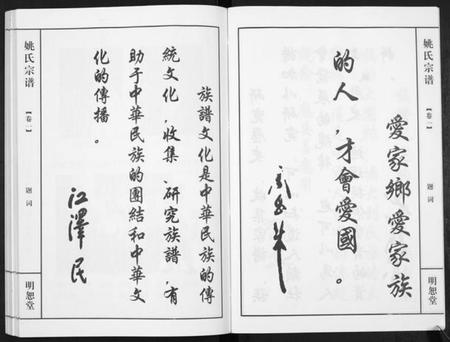 姚氏宗谱
【卷一】
题词
明恕堂
愛家鄉愛家族
的人，才會愛國。
族譜文化是中華民族的傳
統文化，收集、研究族譜，有
助于中華民族的團結和中華文
化的傳播。
江澤民
姚氏宗谱
【卷一】
题词
明恕堂